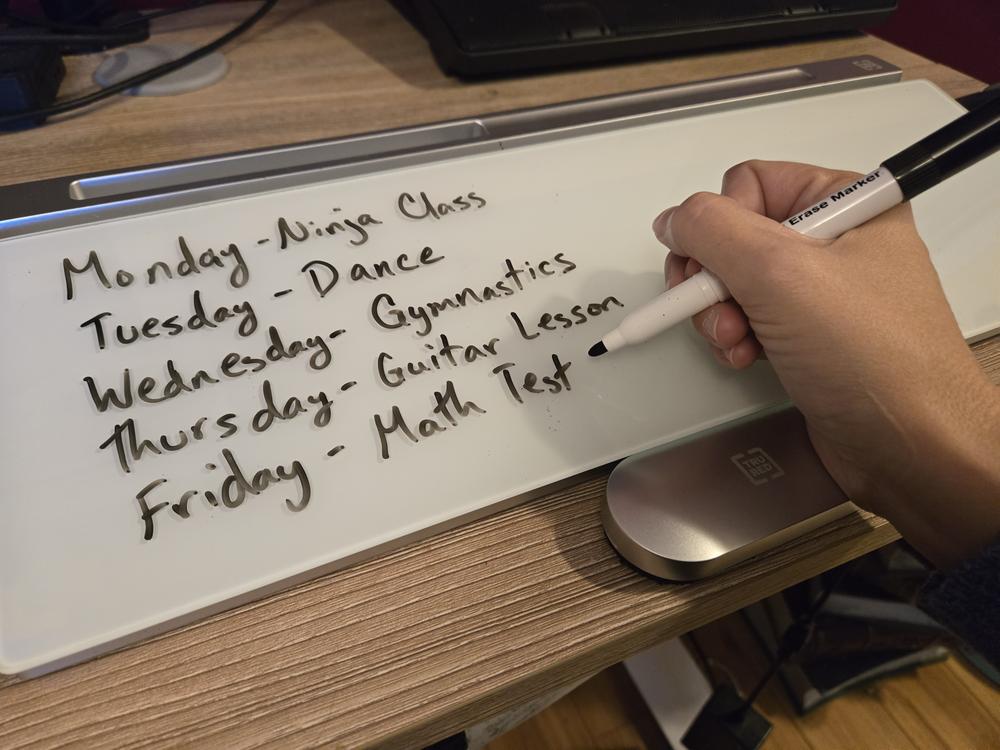 Monday - Ninja Class
Tuesday - Dance
Wednesday- Gymnastics
Thursday - Guitar Lesson
Friday - Math Test
Erase Marker
TRU
RED